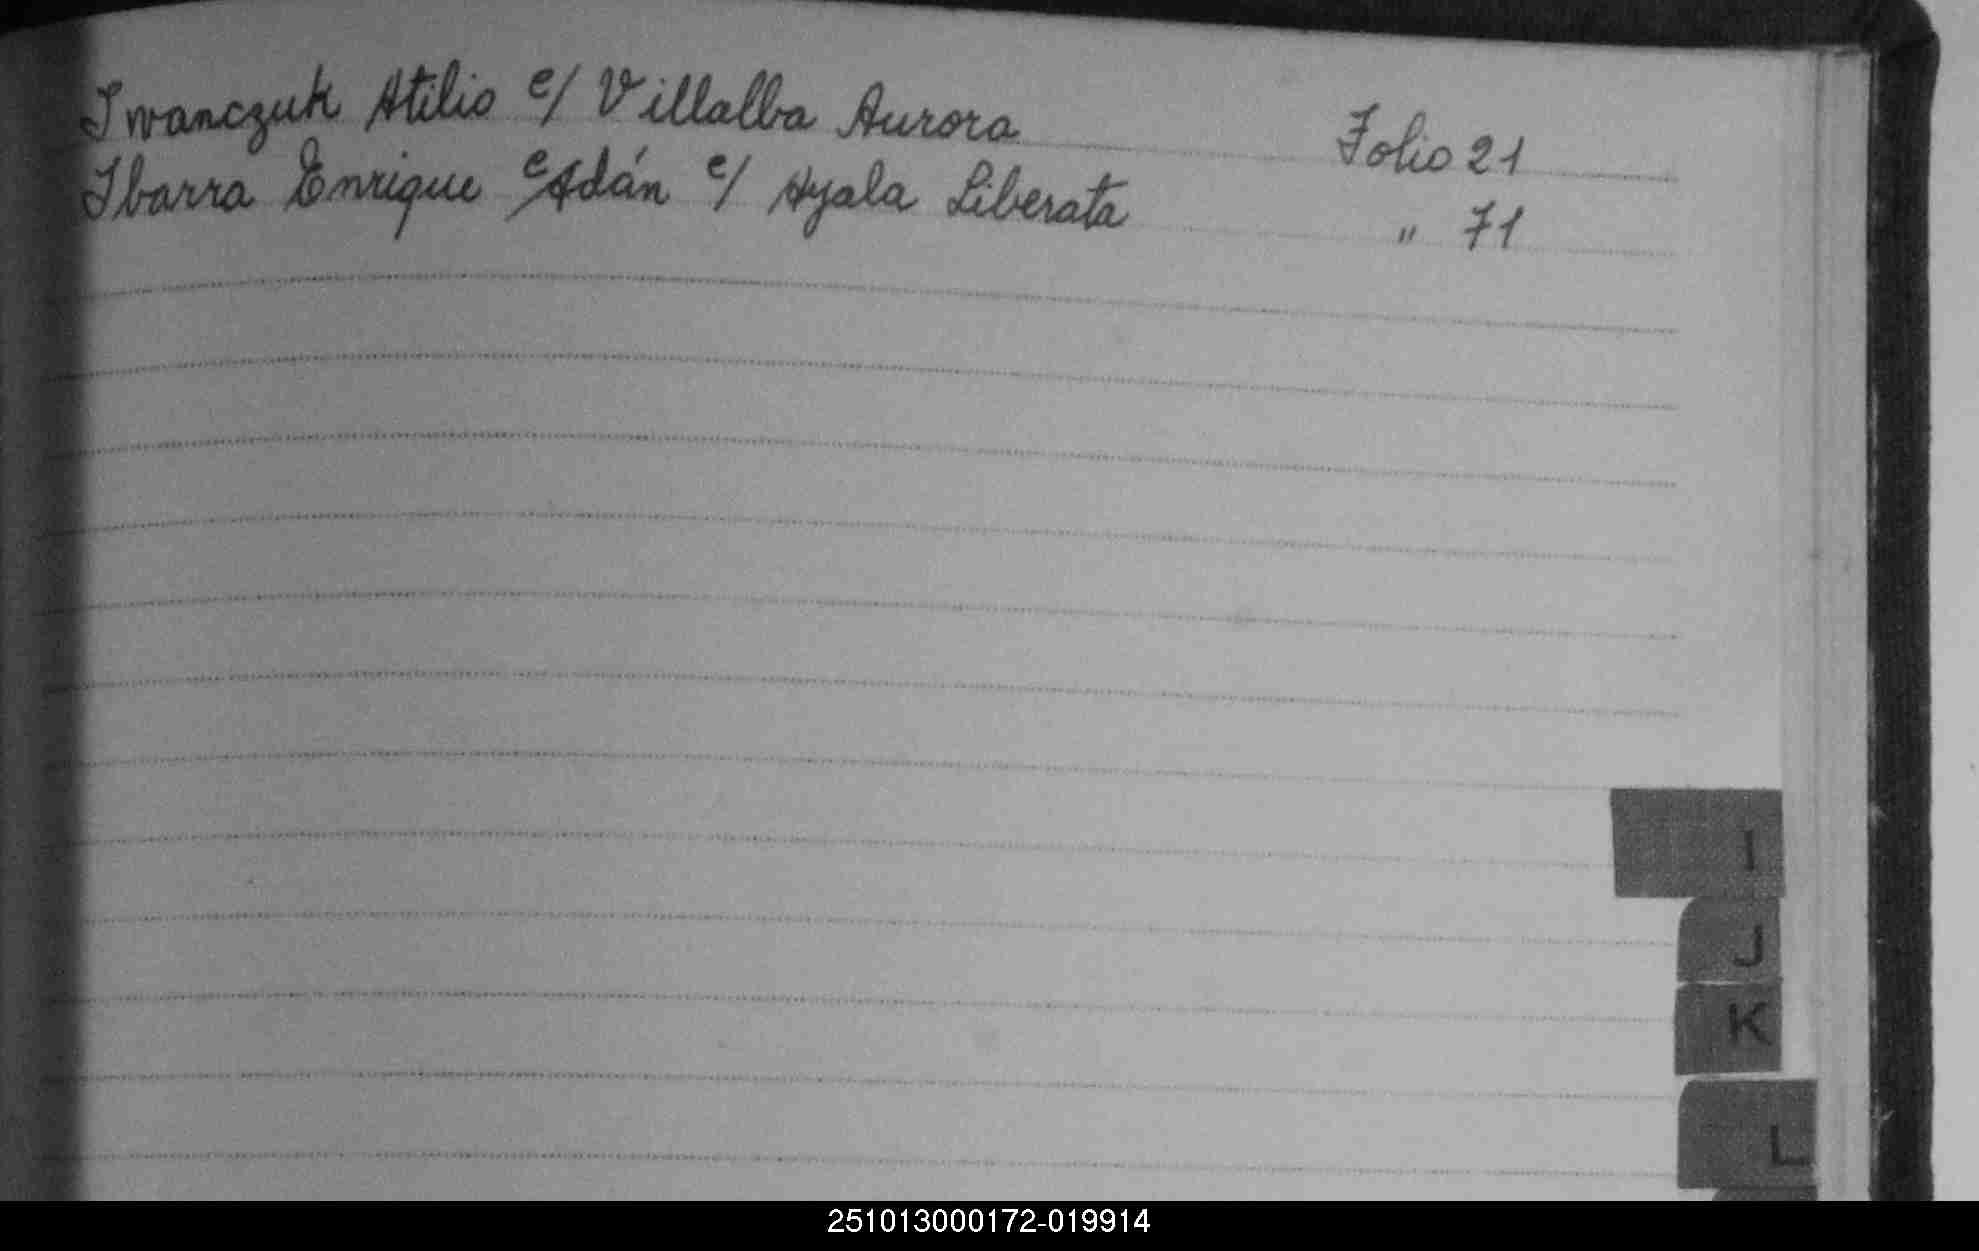 Iwanczuk Atilio c/ Villalba Aurora Folio 21
Ibarra Enrique Adán c/ Ayala Liberata " 71
I
J
K
L
251013000172-019914